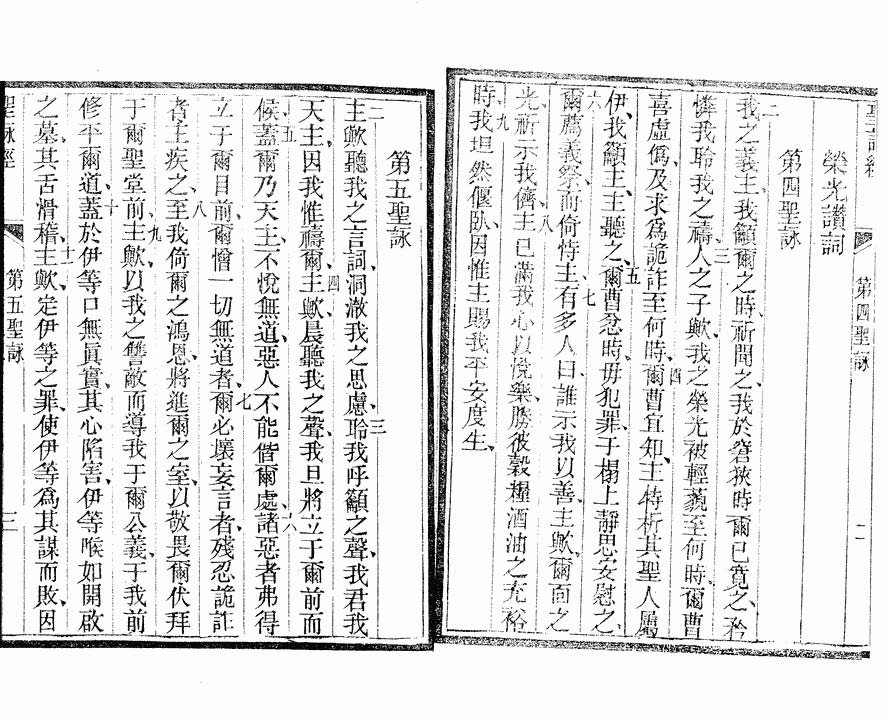 聖詠經
第四聖詠
二
榮光讚詞
第四聖詠
二我之義主、我籲爾之時、祈聞之、我於窘狹時、爾已寬之、矜
憐我聆我之禱、三人之子歟、我之榮光被輕藐、至何時、爾曹
喜虛僞、及求爲詭詐至何時、四爾曹宜知、主特析其聖人屬
伊、我籲主、主聽之、五爾曹忿時、毋犯罪、于榻上靜思安慰之、
六爾薦義祭、而倚恃主、七有多人曰、誰示我以善、主歟、爾面之
光、祈示我儕、八主已滿我心以悅樂、勝彼穀糧酒油之充裕
時、九我坦然偃臥、因惟主賜我平安度生、
第五聖詠
二主歟、聽我之言詞、洞澈我之思慮、三聆我呼籲之聲、我君我
天主、因我惟禱爾、四主歟、晨聽我之聲、我旦將立于爾前而
候、五蓋爾乃天主、不悅無道、惡人不能偕爾處、六諸惡者弗得
立于爾目前、爾憎一切無道者、七爾必壞妄言者、殘忍詭詐
者、主疾之、八至我倚爾之鴻恩、將進爾之室、以敬畏爾伏拜
于爾聖堂前、九主歟、以我之讐敵而導我于爾公義、于我前
修平爾道、十蓋於伊等口無眞實、其心陷害、伊等喉如開啟
之墓、其舌滑稽、十一主歟、定伊等之罪、使伊等爲其謀而敗、因
聖詠經
第五聖詠
三